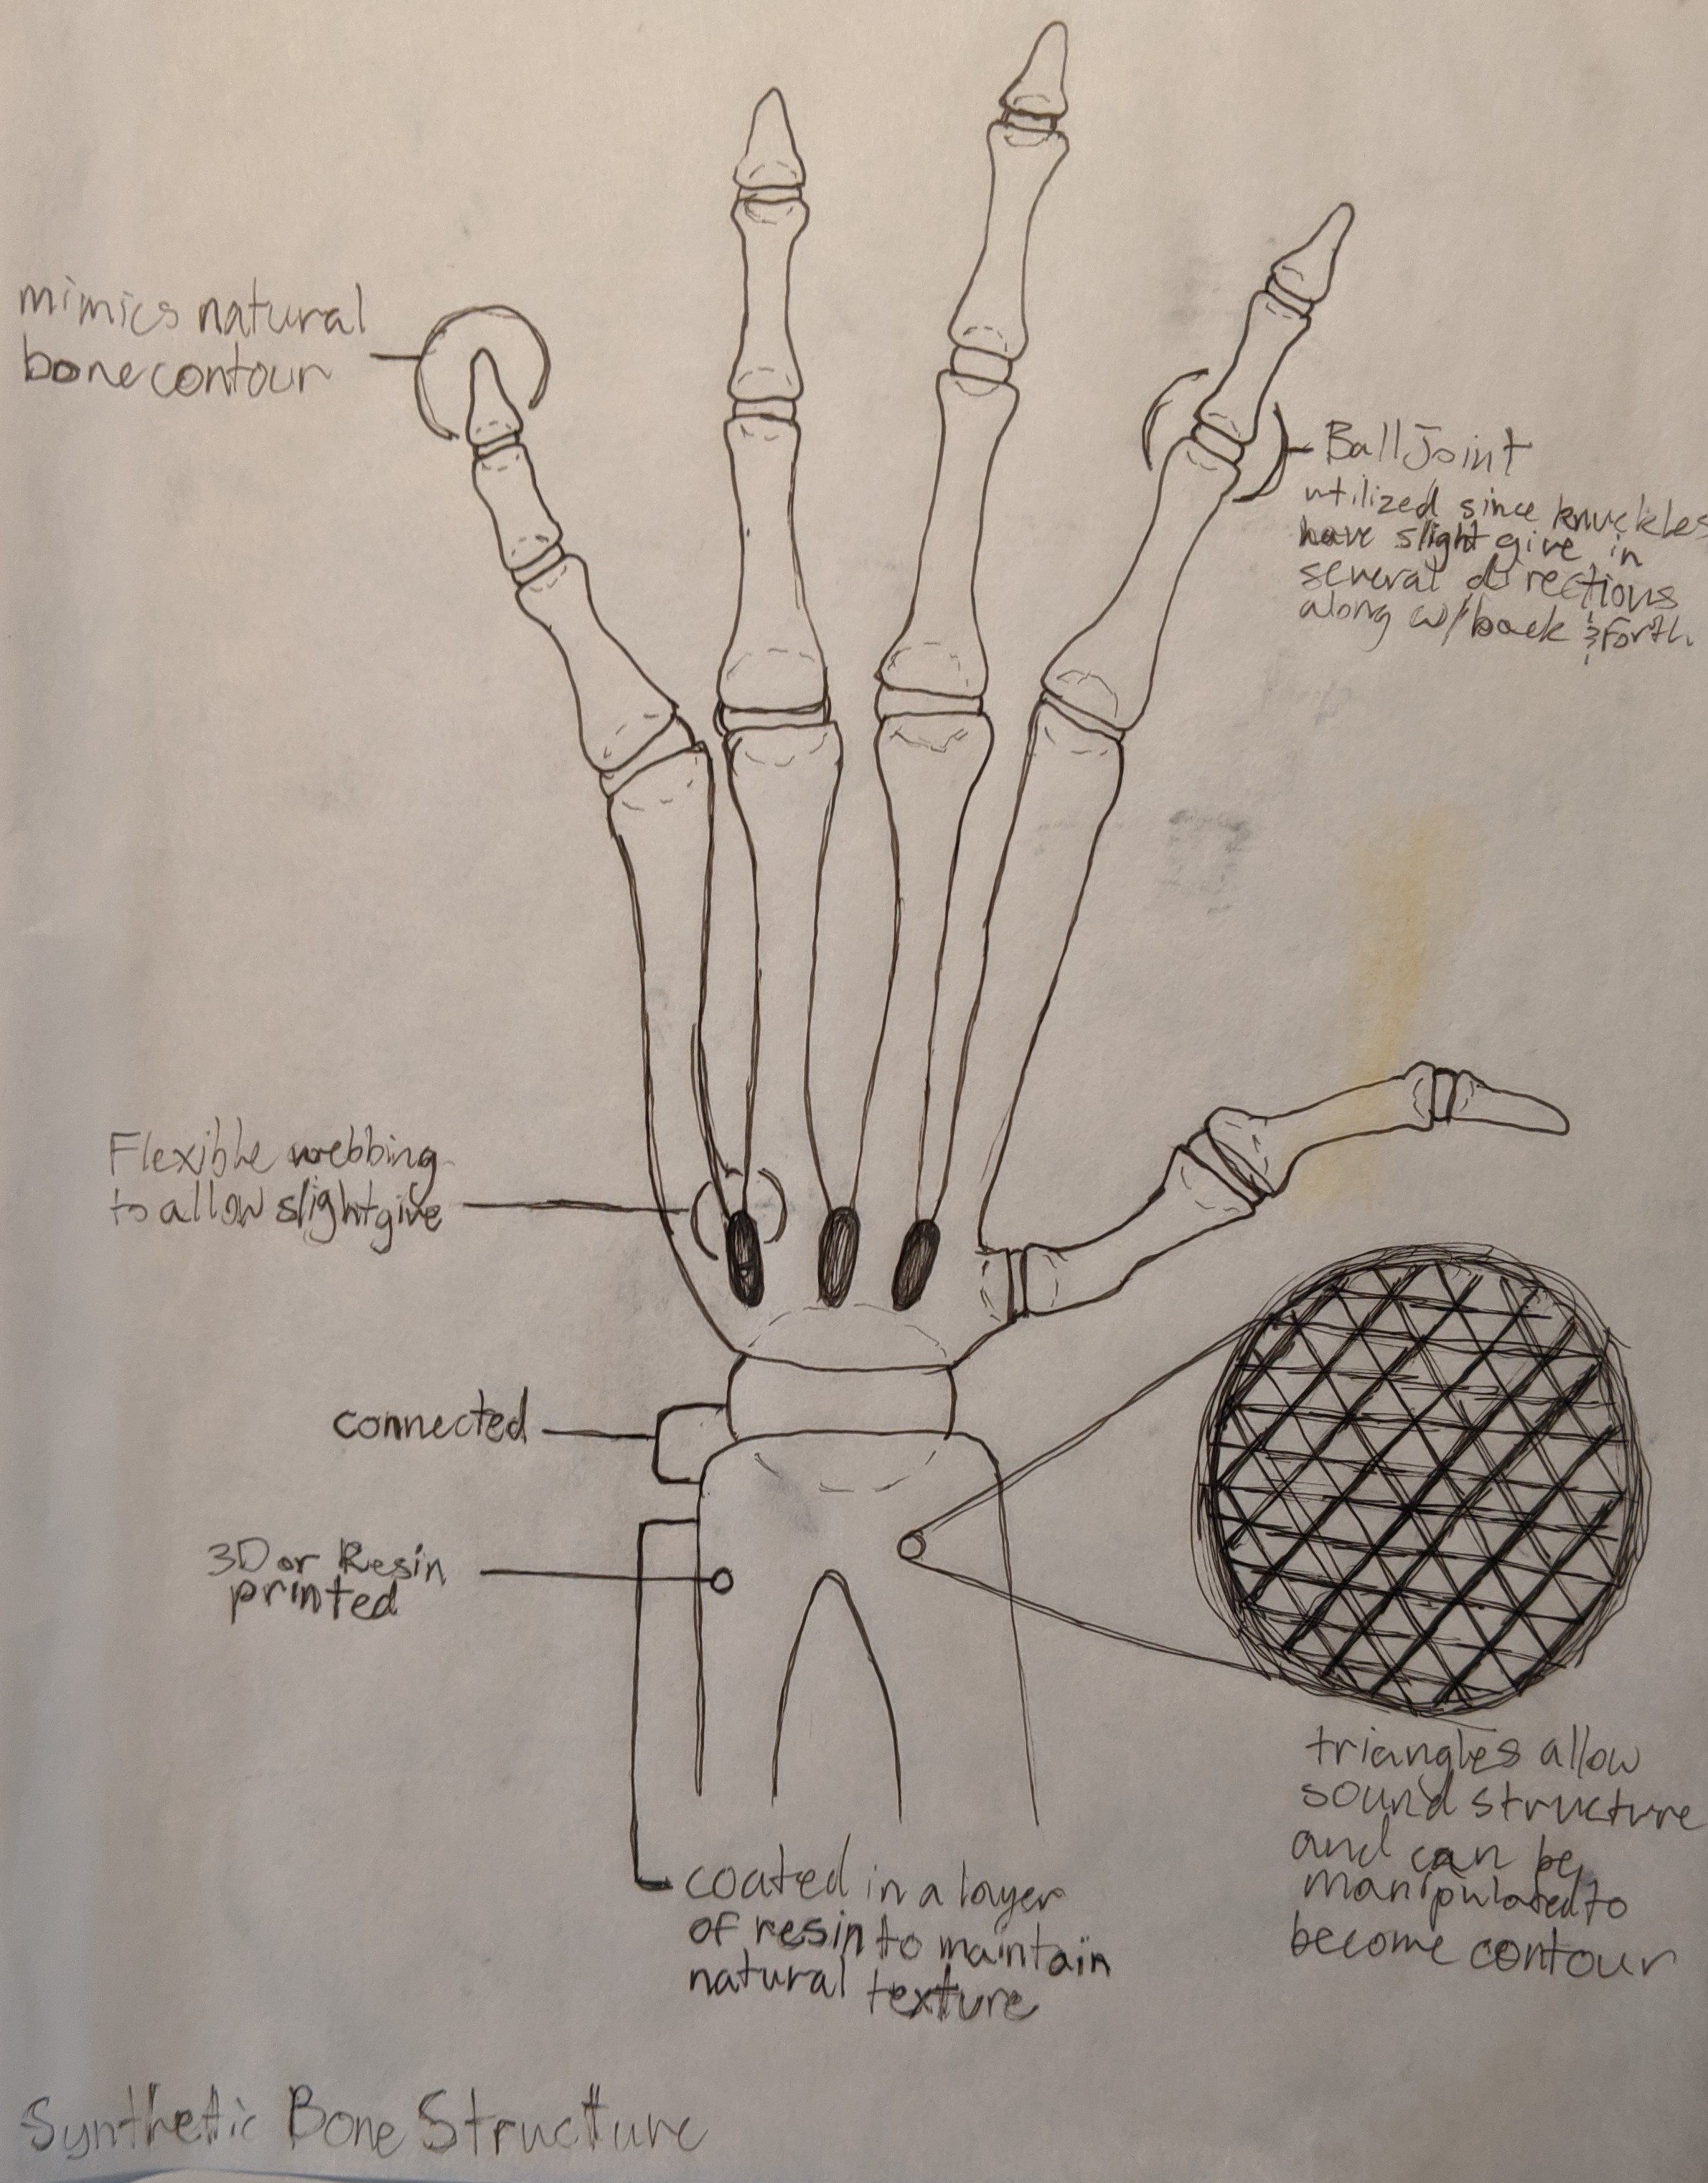 mimics natural
bone contour
Ball Joint
utilized since knuckles
have slight give in
several directions
along w/ back & forth
Flexible webbing
to allow slight give
connected
3D or Resin
printed
triangles allow
sound structure
and can be
manipulated to
become contour
coated in a layer
of resin to maintain
natural texture
Synthetic Bone Structure